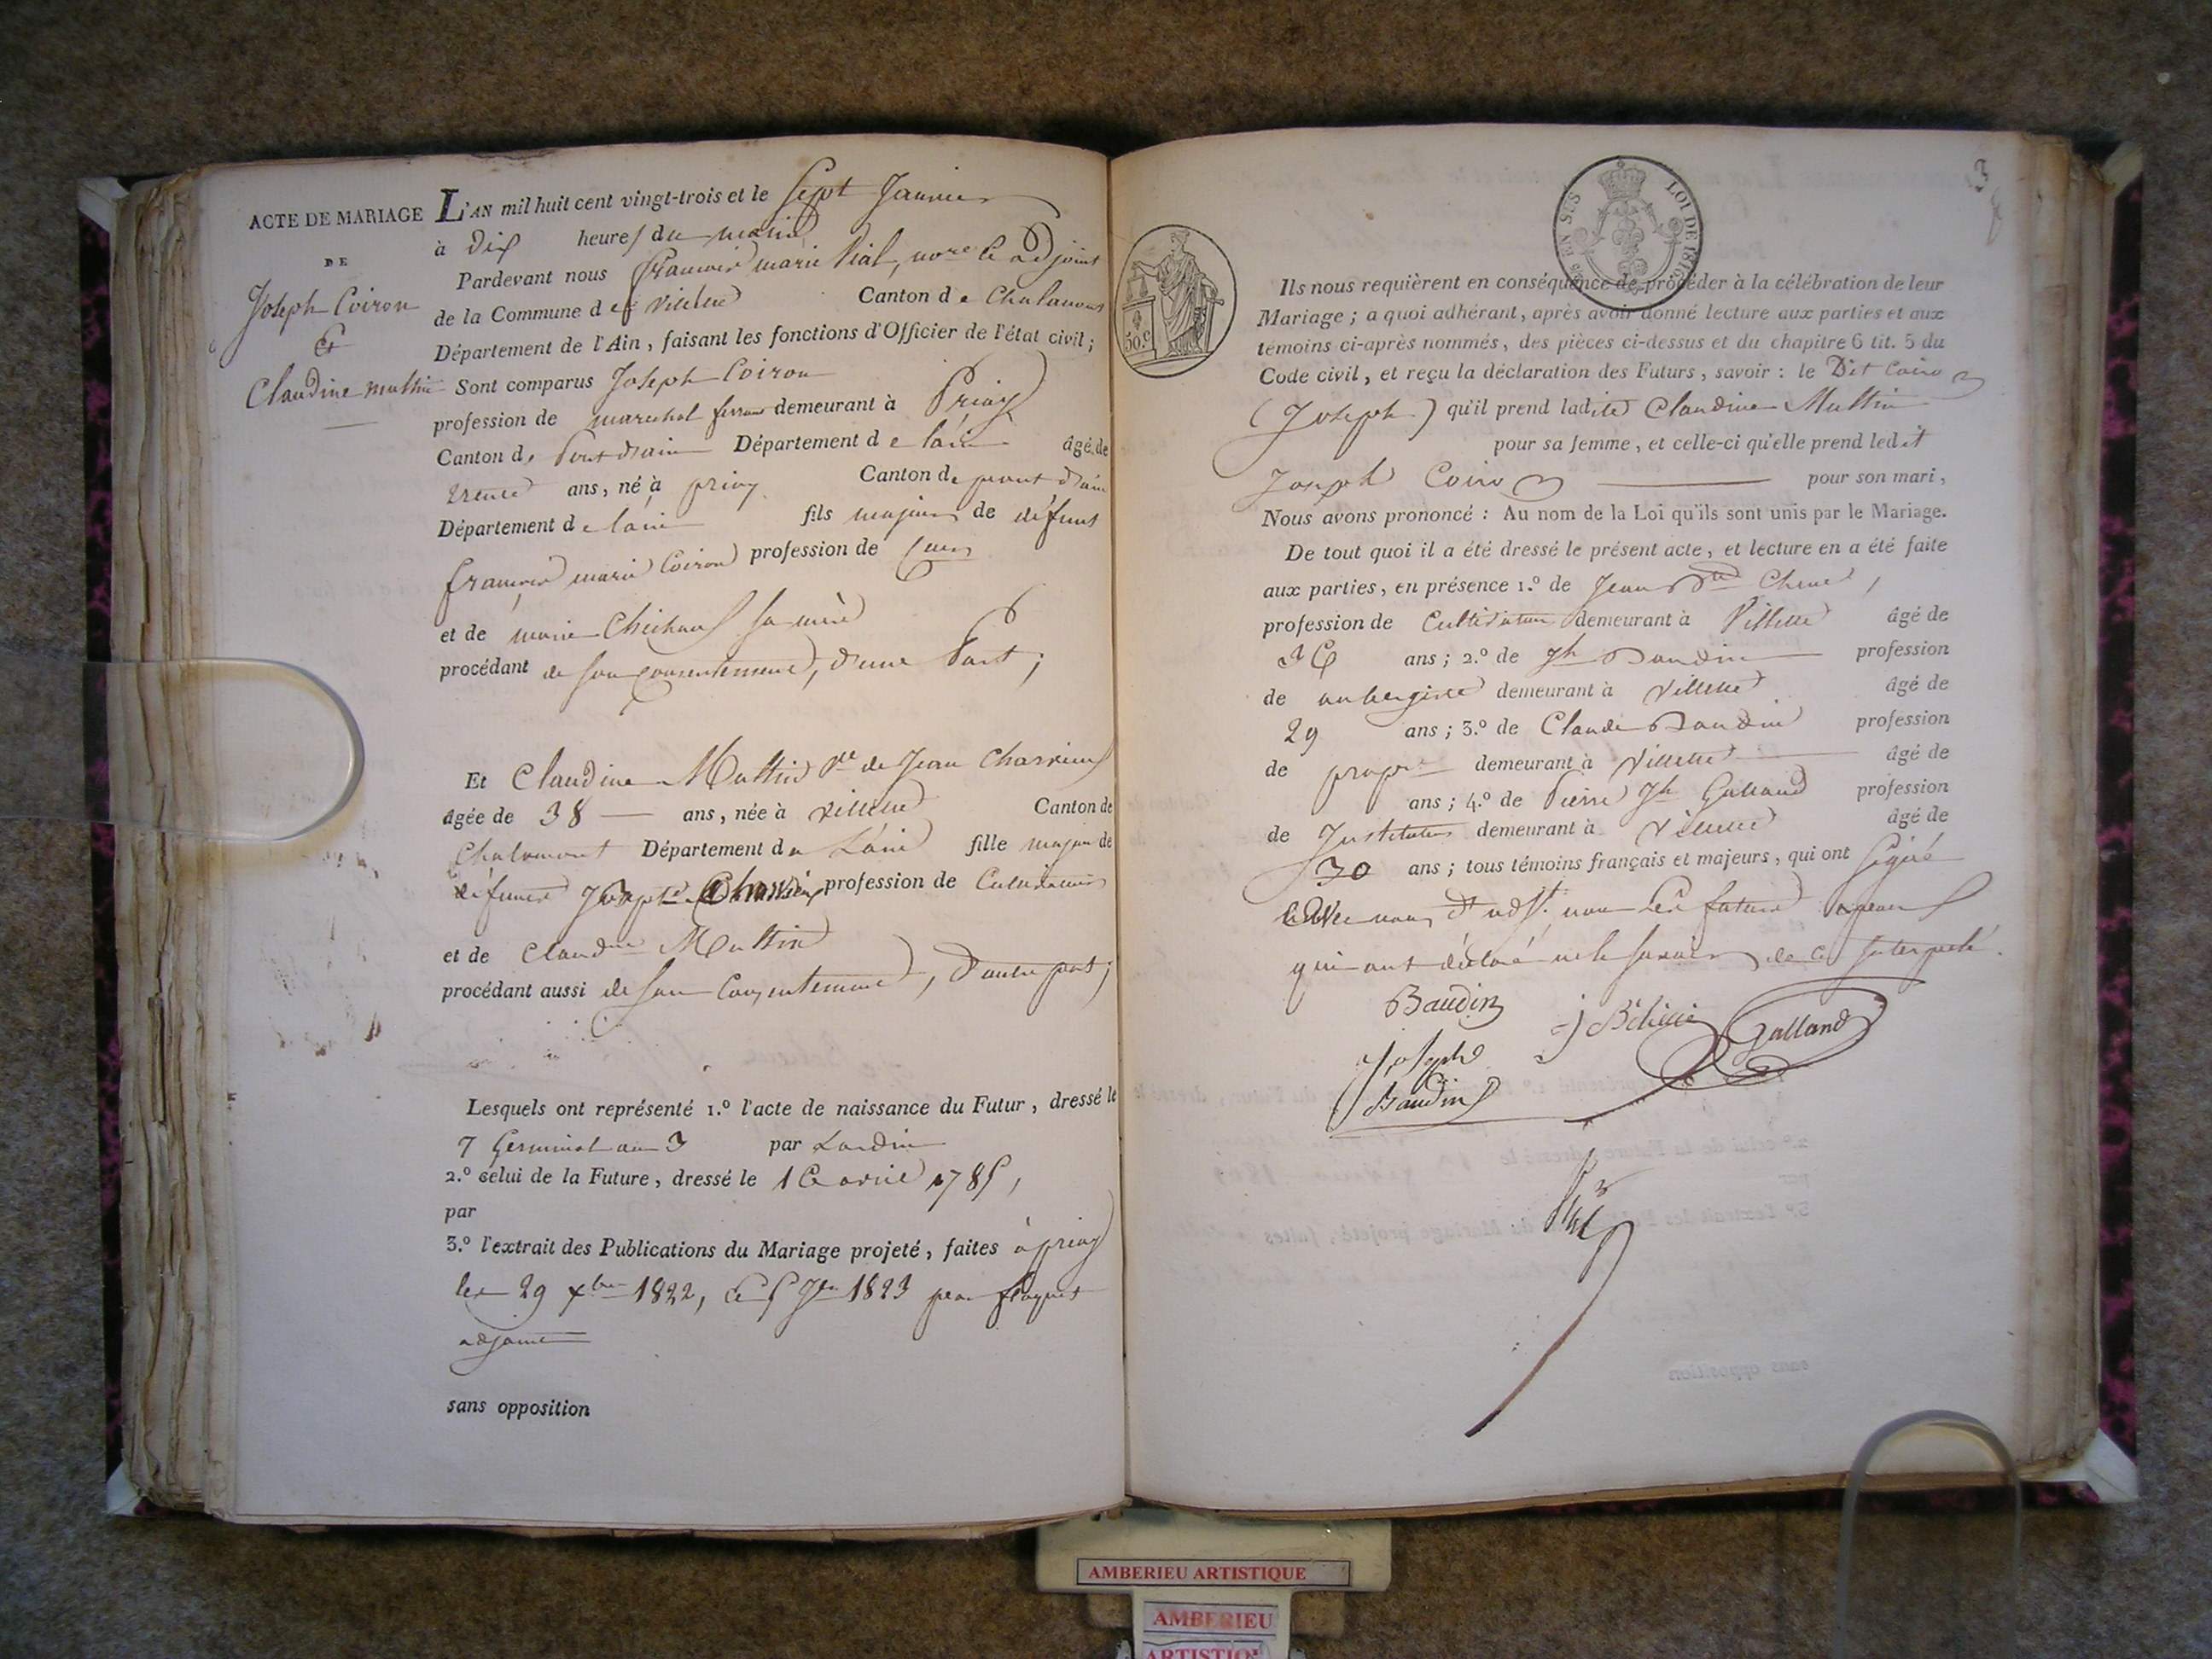 ACTE DE MARIAGE
DE
Joseph Coiron
Et
Claudine Muttin
L'AN mil huit cent vingt-trois et le Sept Janvier
à dix heures du matin
Pardevant nous françois marie Vial, adjoint
de la Commune de Villette Canton de Chalamont
Département de l'Ain, faisant les fonctions d'Officier de l'état civil;
Sont comparus Joseph Coiron
profession de marechal ferrant demeurant à Priay
Canton de Pont d'ain Département de l'ain âgé de
trente ans, né à priay Canton de pont d'ain
Département de l'ain fils majeur de défunt
françois marie Coiron profession de
et de marie sa mère
procédant de son consentement, d'une Part;
Et Claudine Muttin Ve de Jean Charvieux
âgée de 38 ans, née à villette Canton de
Chalamont Département de L'ain fille majeure de
défunt profession de Cultivateur
et de Claudine Muttin
procédant aussi de son Consentement, d'autre part;
Lesquels ont représenté 1.º l'acte de naissance du Futur, dressé le
7 Germinal an 3 par
2.º celui de la Future, dressé le avril 1785,
par
3.º l'extrait des Publications du Mariage projeté, faites à priay
les 29 xbre 1822, 5 Jer 1823 par
adjoint
sans opposition
50 c
LOI DE 1816
3
Ils nous requièrent en conséquence de procéder à la célébration de leur
Mariage; a quoi adhérant, après avoir donné lecture aux parties et aux
témoins ci-après nommés, des pièces ci-dessus et du chapitre 6 tit. 5 du
Code civil, et reçu la déclaration des Futurs, savoir: le Dit Coiron
(Joseph) qu'il prend ladite Claudine Muttin
pour sa femme, et celle-ci qu'elle prend ledit
Joseph Coiron pour son mari,
Nous avons prononcé: Au nom de la Loi qu'ils sont unis par le Mariage.
De tout quoi il a été dressé le présent acte, et lecture en a été faite
aux parties, en présence 1.º de Jean
profession de Cultivateur demeurant à Villette âgé de
36 ans; 2.º de Jh Baudin profession
de aubergiste demeurant à Villette âgé de
29 ans; 3.º de Claude Baudin profession
de propre demeurant à Villette âgé de
ans; 4.º de Pierre Jh Galland profession
de Instituteur demeurant à Villette âgé de
30 ans; tous témoins français et majeurs, qui ont Signé
avec nous non Les futurs
qui ont déclaré ne le savoir de ce Interpellé.
Baudin
Galland
Joseph
Baudin
Vial
AMBERIEU ARTISTIQUE
AMBERIEU
ARTISTIQ